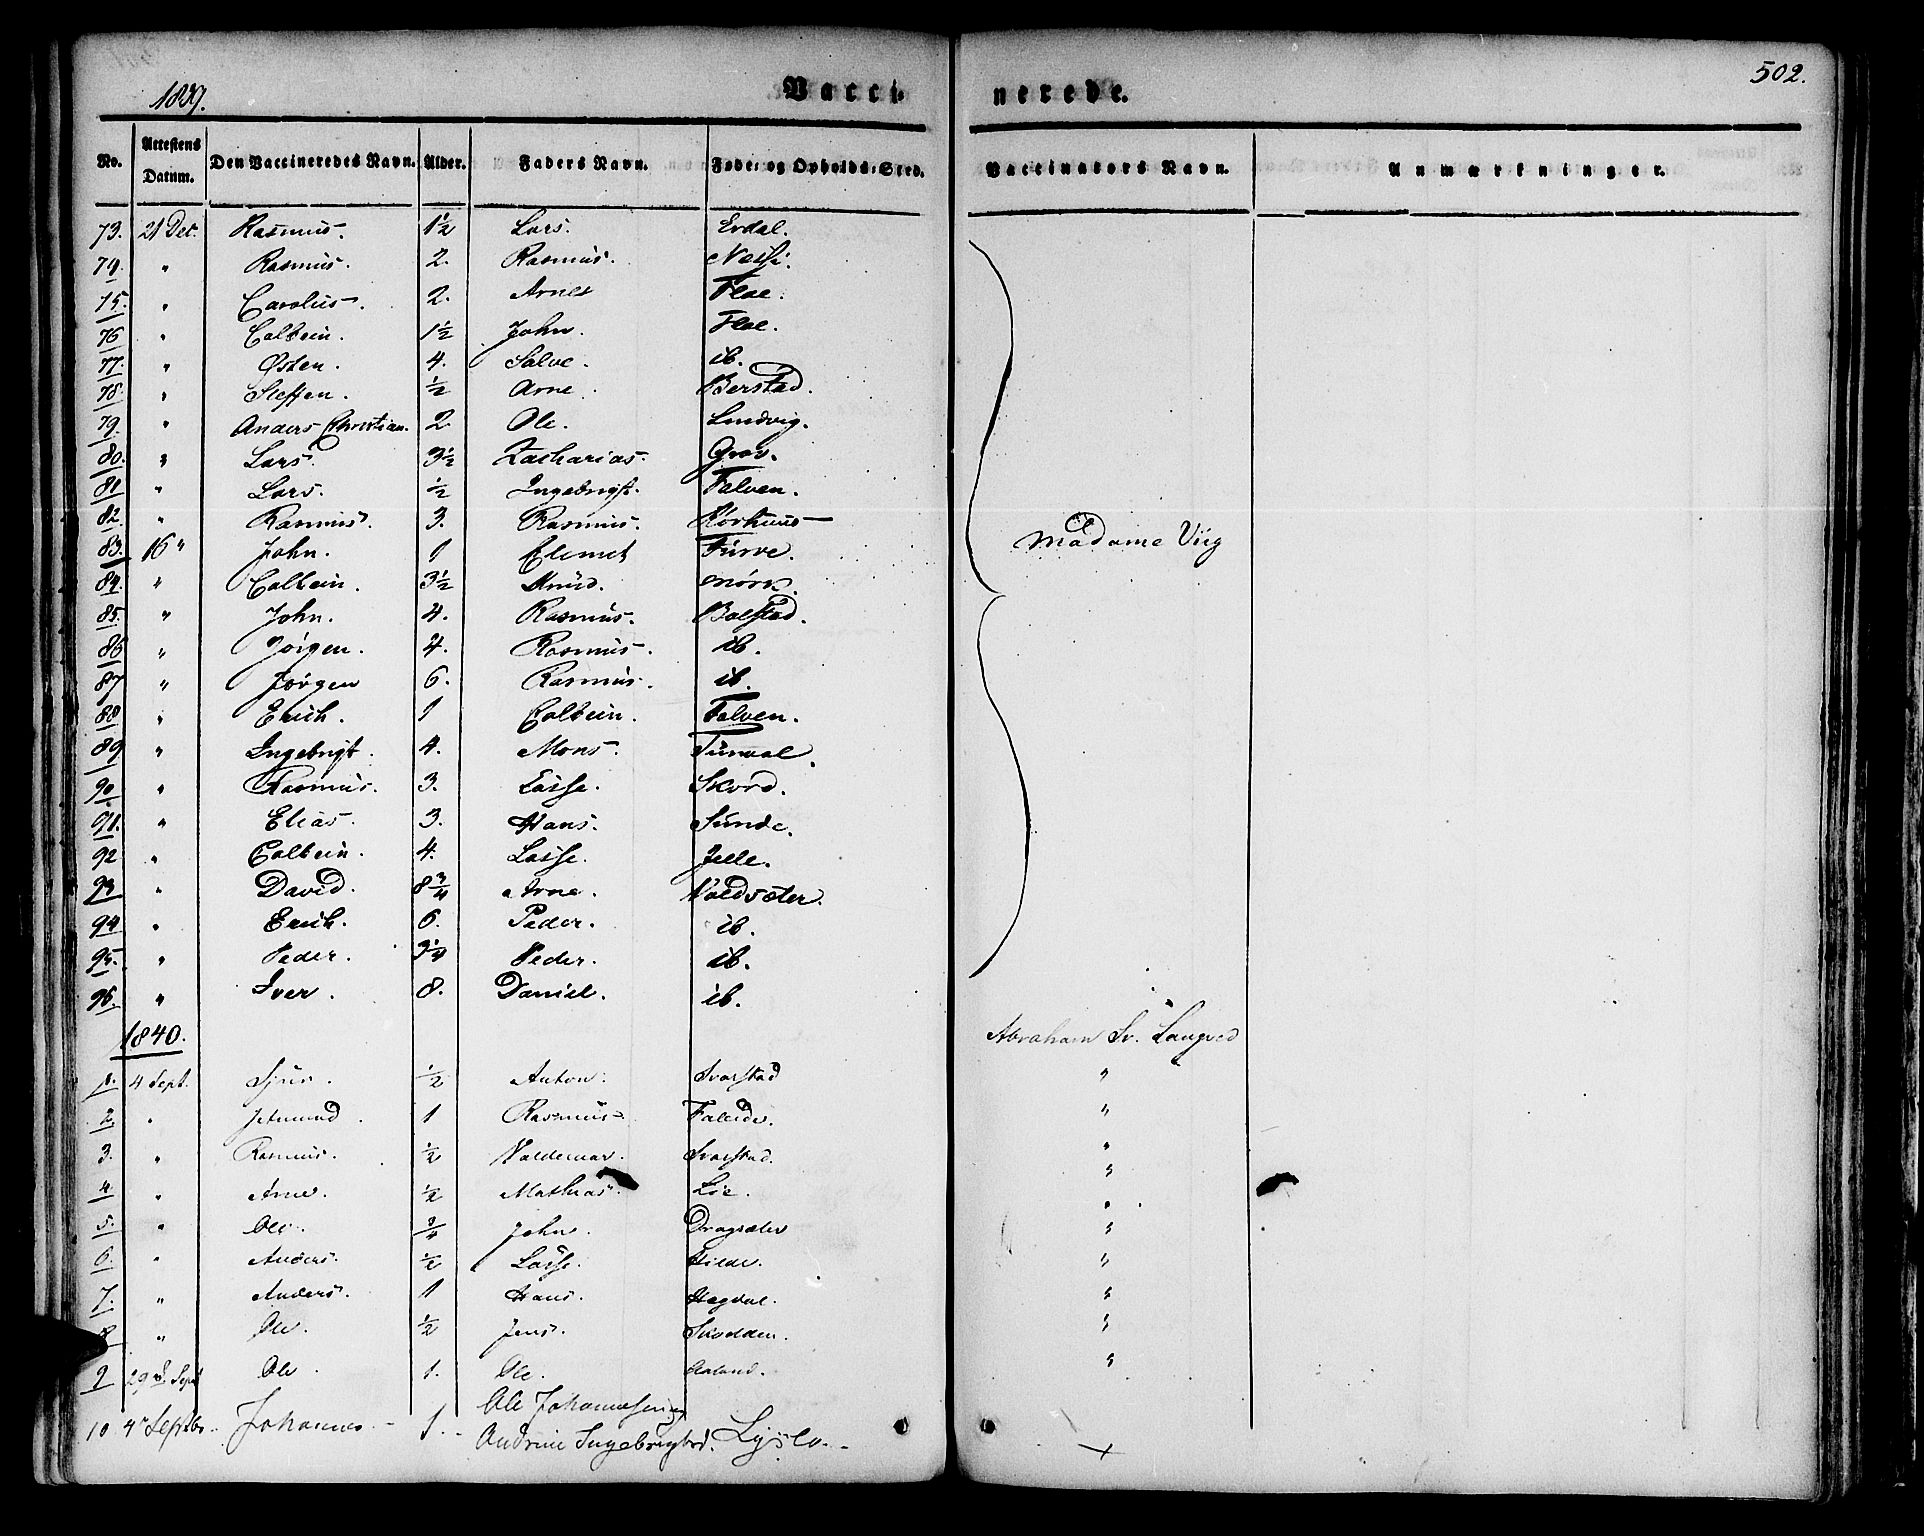 1839.
Vacci- nerede.
502.
No. Attestens Datum. Den Vaccineredes Navn. Alder. Faders Navn. Føde- og Opholds-Sted. Vaccinators Navn. Anmærkninger.
73. 21 Det. Rasmus. 1½ Lars. Erdal.
74. " Rasmus. 2. Rasmus. Nesse.
75. " Carolus. 2. Arnes Floe.
76 " Colbein. 1½ John. Floe.
77. " Østen. 4. Salve. ib.
78. " Steffen. ½ Arne. Berstad.
79. " Anders Christian. 2 Ole. Lundvig.
80. " Lars. 3½ Zacharias. Grov.
81 " Lars. ½ Ingebrigt. Falven.
82. " Rasmus. 3. Rasmus.
83. 16 " John. 1 Clemet Turve. Madame Viig
84. " Colbein. 3½ Knud. Mørk.
85. " John. 4. Rasmus. Bolstad.
86 " Jörgen. 4. Rasmus. ib.
87 " Jörgen 6. Rasmus. ib.
88 " Erich. 1 Colbein. Falven.
89 " Ingebrigt. 4. Mons.
90 " Rasmus. 3. Lasse. Skord.
91. " Elias. 3. Hans. Sunde.
92 " Colbein. 4. Lasse. Jelle.
93 " David. 8¾ Arne. Voldsæter.
94 " Erich. 6. Peder. ib.
95. " Peder. 3¼ Peder. ib.
96. " Iver. 8. Daniel. ib.
1840. Abraham Sr. Langved
1. 4 Sept. Sjur. ½ Anton. Svarstad "
2 " Jetmund. 1 Rasmus Faleide. "
3. " Rasmus. ½ Valdemar. Svarstad. "
4 " Arne. ½ Mathias. Löe. "
5. " Ole. ¾ John. Dragsæter "
6. " Anders. ½ Lasse. Hilde. "
7. " Anders. 1 Hans. Hegdal. "
8 " Ole. ½ Jens. Skodden. "
9 29 Sept Ole. 1. Ole. Aaland. "
10 4 Septbr. Johannes. 1. Ole Johannesen og
Andrine Ingebrigtsd. Lyslo.